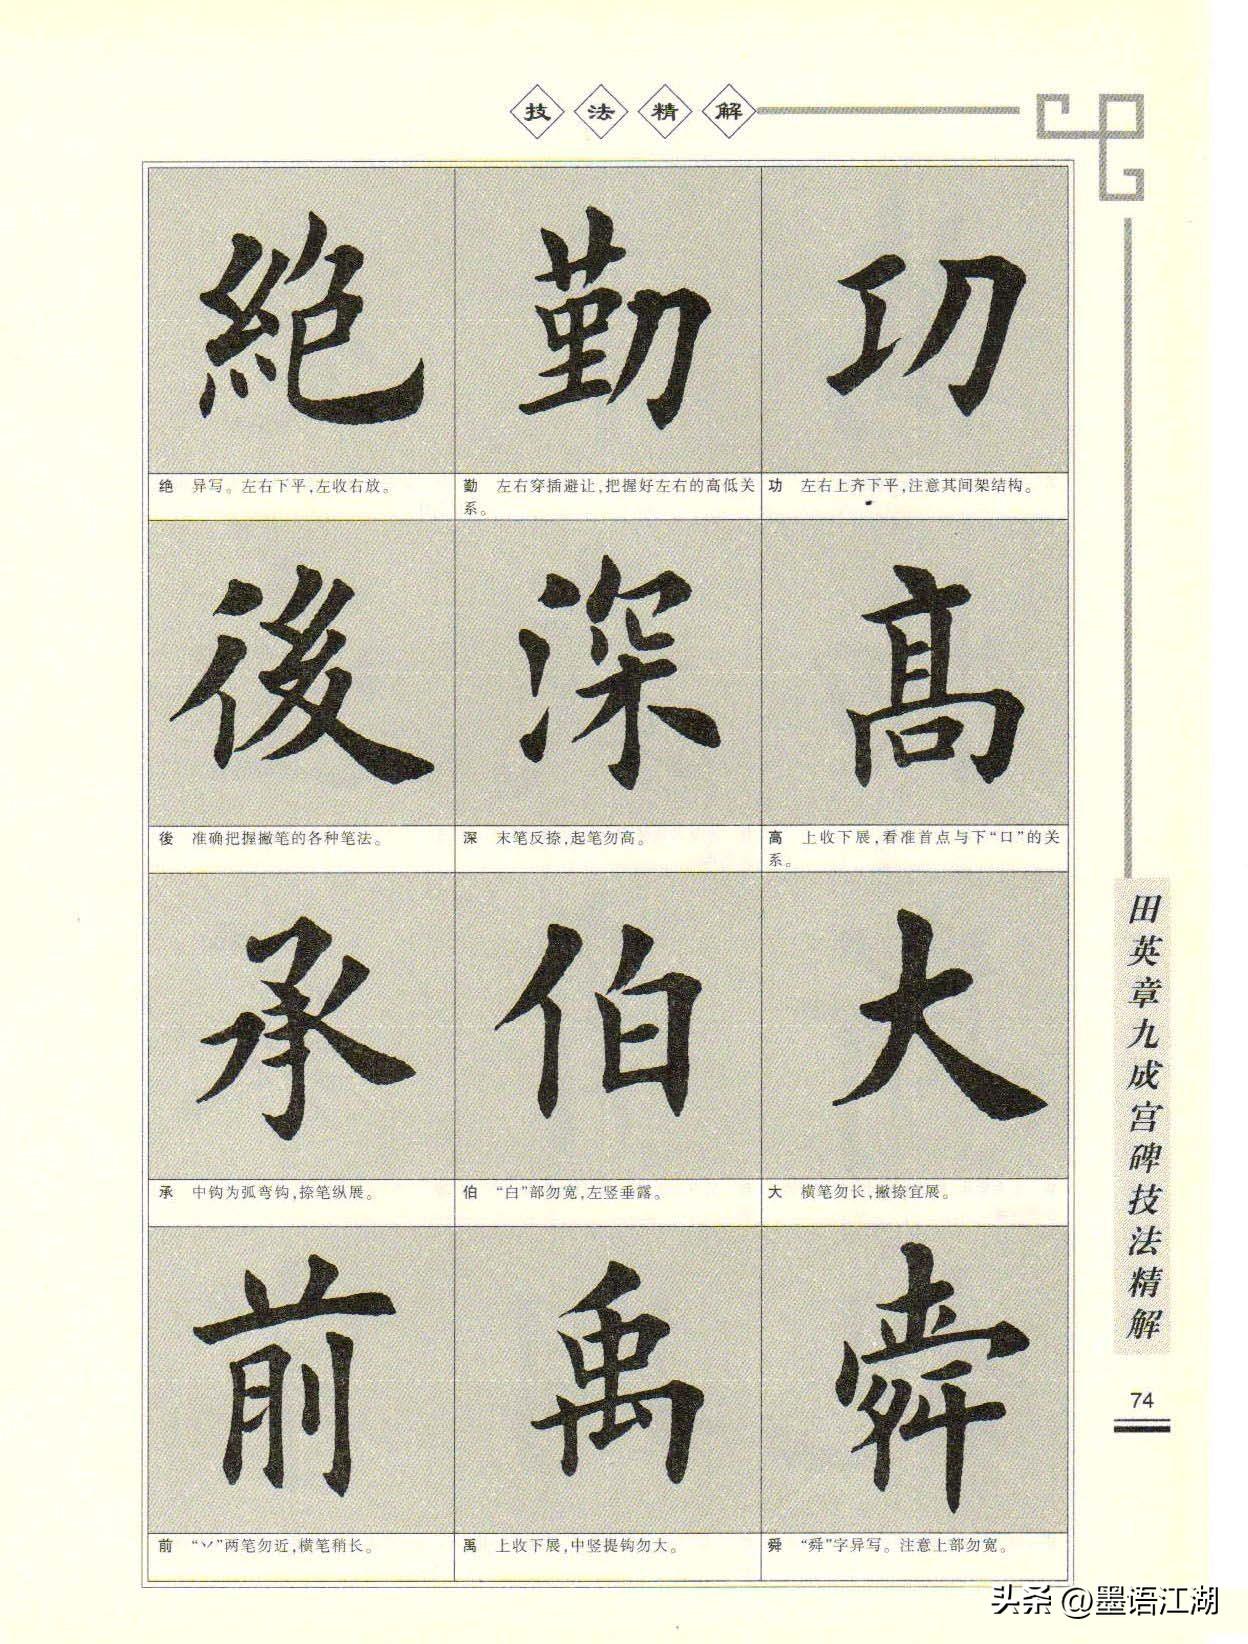 技法精解
絕 勤 功
绝 异写。左右下平,左收右放。
勤 左右穿插避让,把握好左右的高低关
系。
功 左右上齐下平,注意其间架结构。
後 深 高
後 准确把握撇笔的各种笔法。
深 末笔反捺,起笔勿高。
高 上收下展,看准首点与下“口”的关
系。
承 伯 大
承 中钩为弧弯钩,捺笔纵展。
伯 “白”部勿宽,左竖垂露。
大 横笔勿长,撇捺宜展。
前 禹 舜
前 “丷”两笔勿近,横笔稍长。
禹 上收下展,中竖提钩勿大。
舜 “舜”字异写。注意上部勿宽。
田英章九成宫碑技法精解
74
头条 @墨语江湖